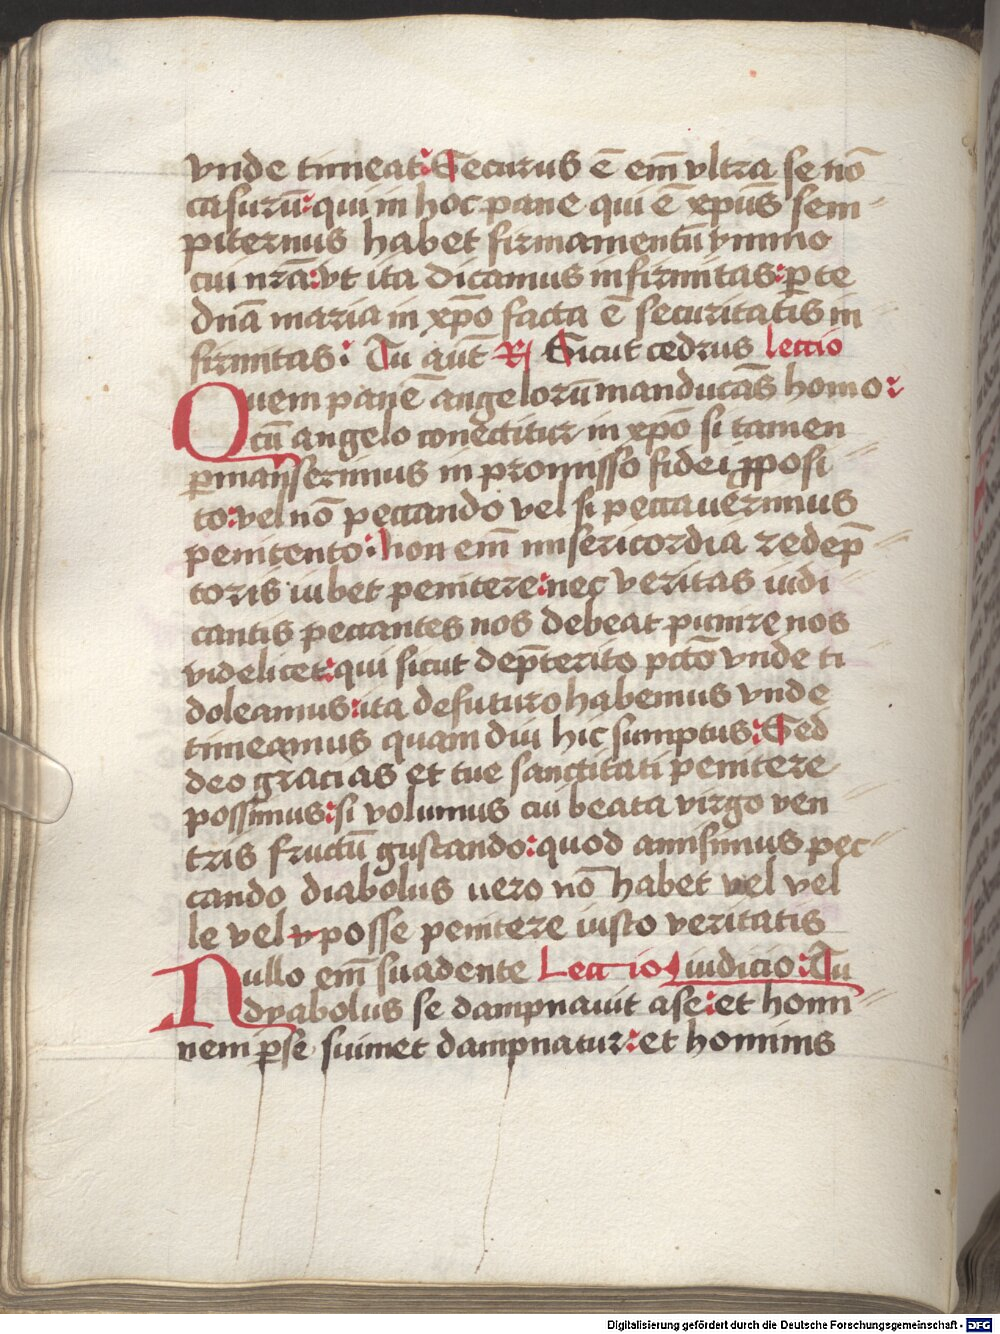 vnde timeat: Securus ē em̄ vltra se nō
casurū: qui in hoc pane qui ē xp̄us sem
piternus habet firmamentū ymmo
cui nr̄a: vt ita dicamus infirmitas: ꝑ te
dn̄a maria in xp̄o facta ē securitatis in
firmitas: Tu aūt ℟ Sicut cedrus lectio
Quem panē angelorū manducās homo:
cū angelo conectitur in xp̄o si tamen
ꝑmanserimus in promisso fidei ꝓposi
to: vel nō peccando vel si peccauerimus
penitento: non em̄ misericordia redēp
toris iubet penitere: nec veritas iudi
cantis peccantes nos debeat punire nos
videlicet: qui sicut dep̄terito pctō vnde ti
doleamus: ita defuturo habemus vnde
timeamus quam diu hic sumptus: Sed
deo gracias et tue sanctitati penitere
possimus: si volumus cui beata virgo ven
tris fructū gustando: quod amisimus pec
cando diabolus uero nō habet vel vel
le vel posse penitere iusto veritatis
Nullo em̄ suadente Lectio iudicio: Tu
dyabolus se dampnauit ase: et homi
nem ꝑse suimet dampnatur: et hominis
Digitalisierung gefördert durch die Deutsche Forschungsgemeinschaft - DFG